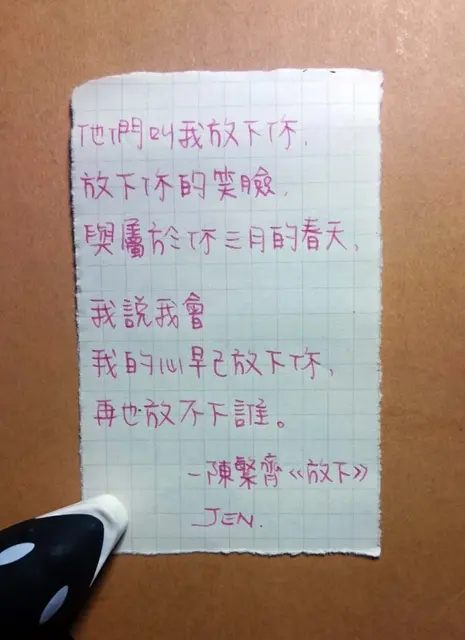 他們叫我放下你,
放下你的笑臉,
與屬於你三月的春天,
我說我會
我的心早已放下你,
再也放不下誰。
-陳繁齊《放下》
JEN.